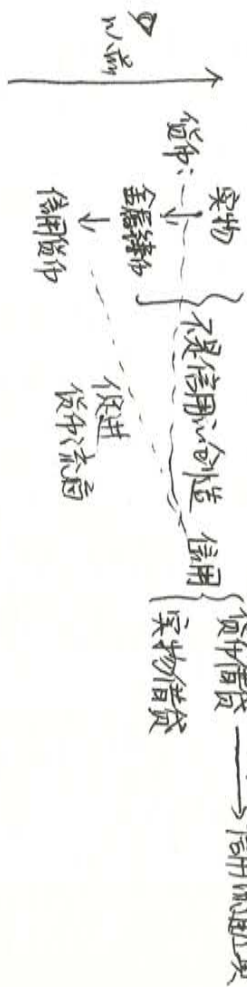 以前
货币：实物
金属铸币
信用货币
不是信用的创造
促进
货币流通
信用
货币借贷
实物借贷
信用流通工具